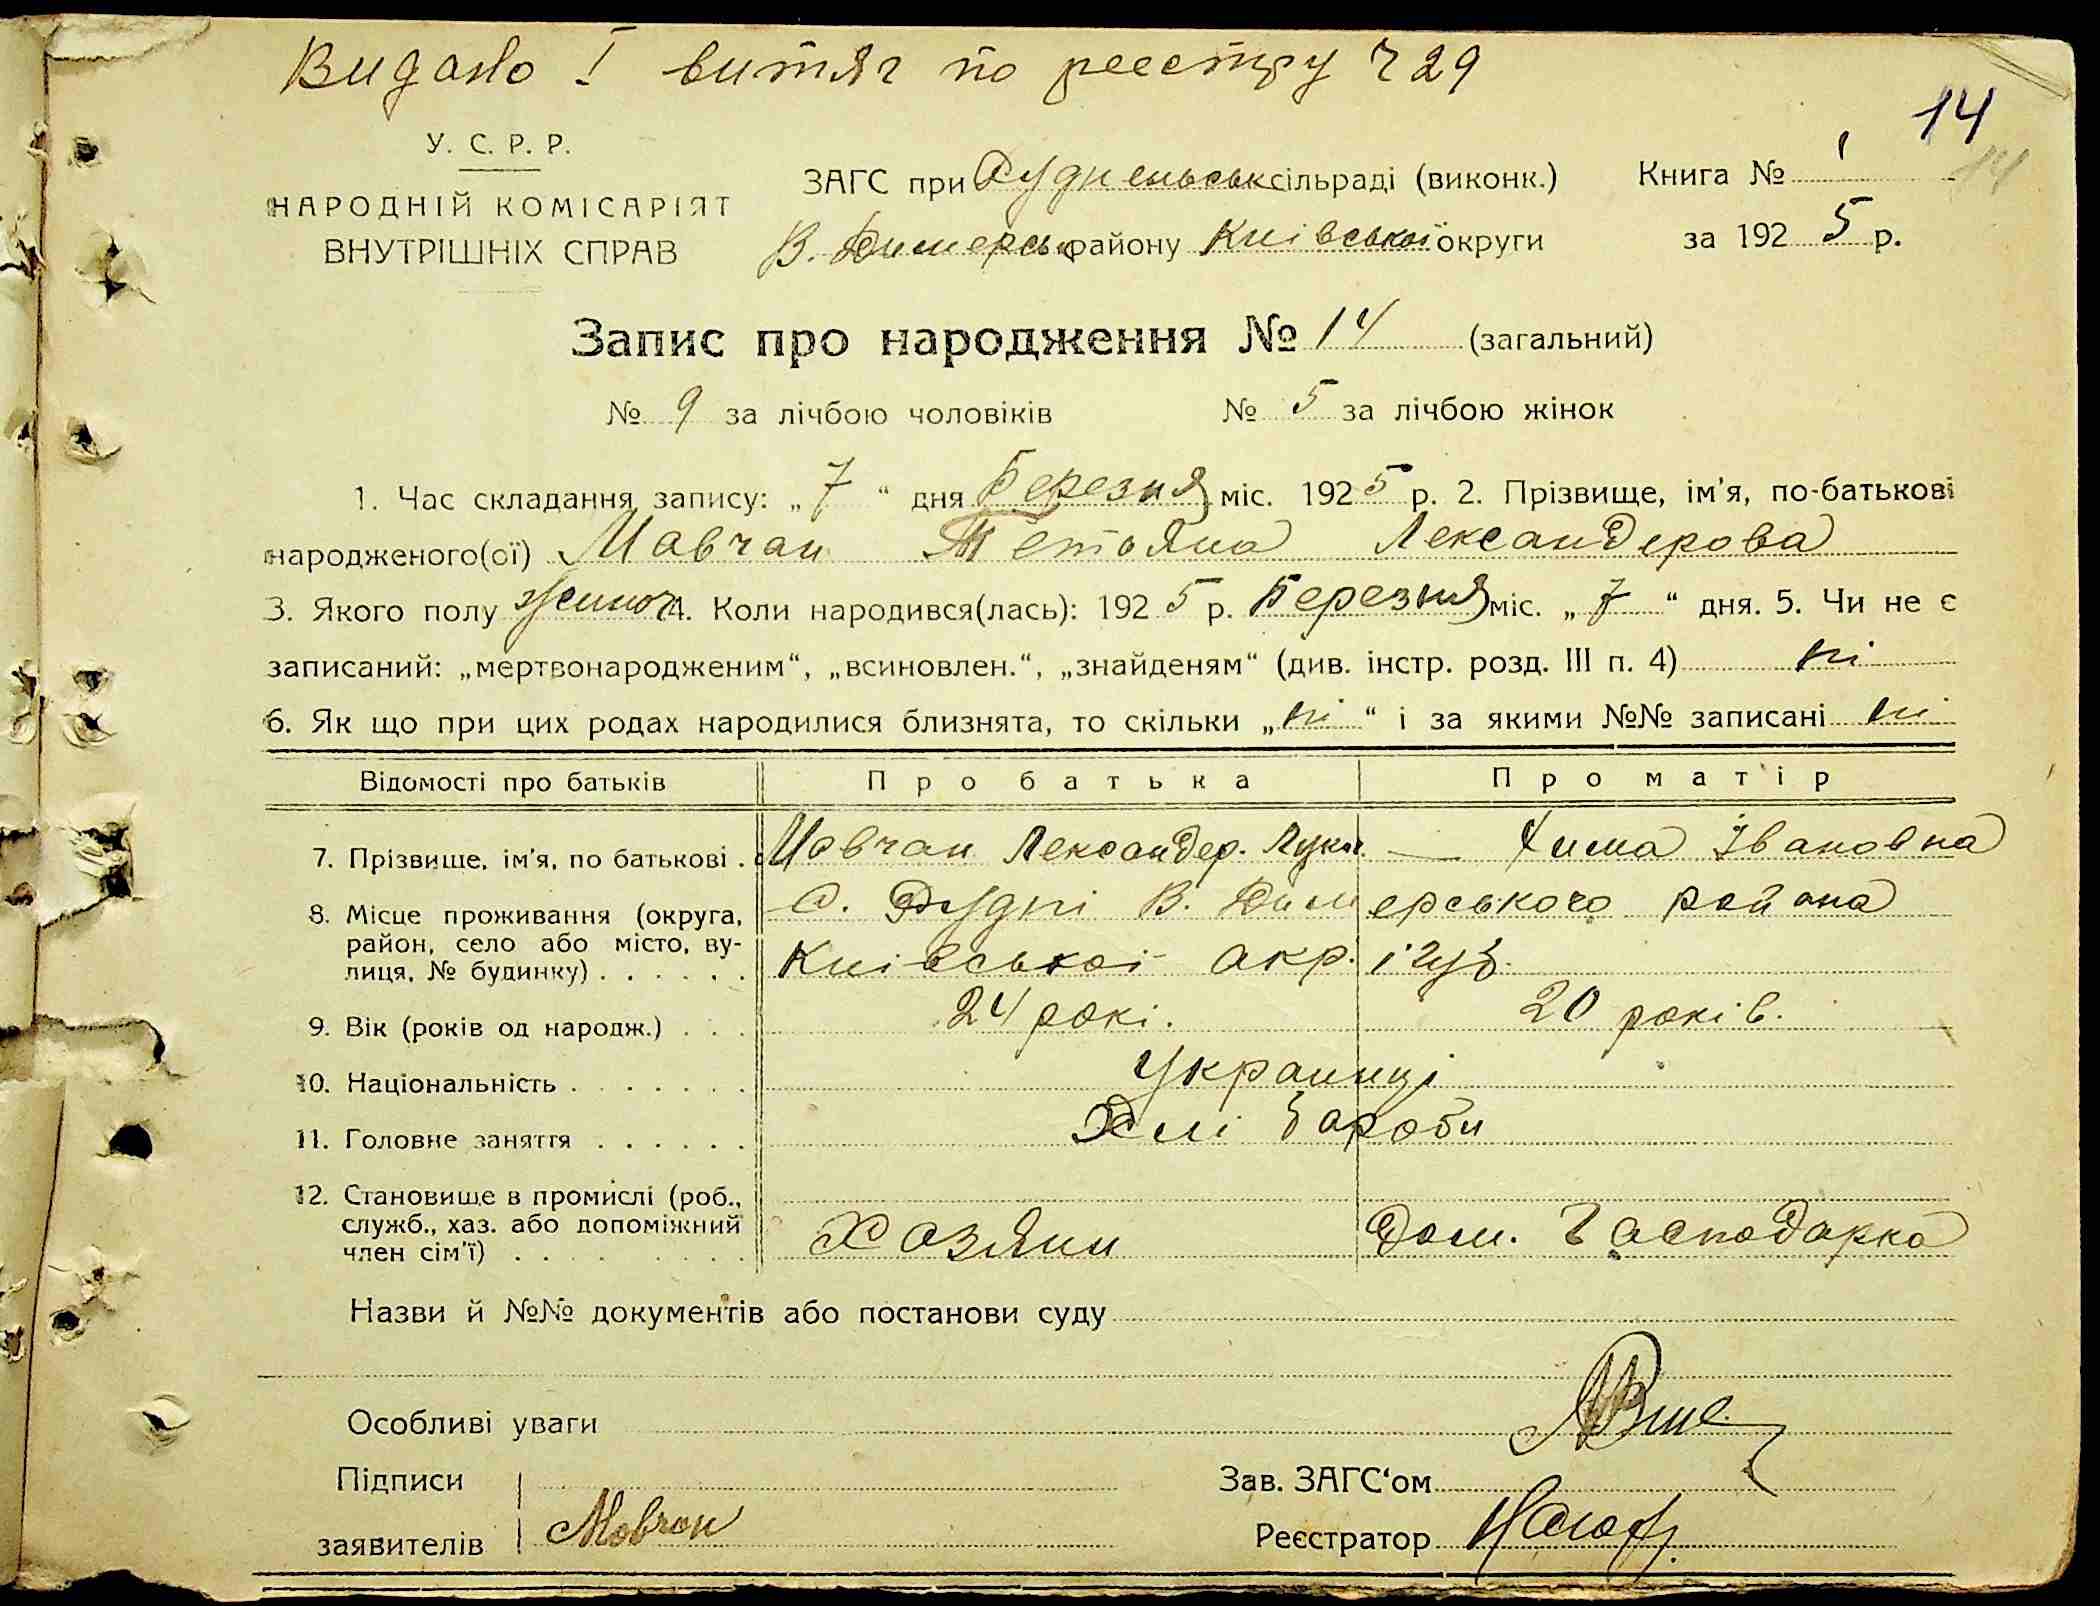 Видано І витяг по реєстру ч 29
14
14
У. С. Р. Р.
НАРОДНІЙ КОМІСАРІЯТ
ВНУТРІШНІХ СПРАВ
ЗАГС при сільраді (виконк.)
В. Димерськ району Київської округи
Книга № 1
за 192 5 р.
Запис про народження № 14 (загальний)
№ 9 за лічбою чоловіків № 5 за лічбою жінок
1. Час складання запису: „ 7 “ дня Березня міс. 192 5 р. 2. Прізвище, ім'я, по-батькові
народженого(ої) Мовчан Тетьяна Лександерова
3. Якого полу жіноч 4. Коли народився(лась): 192 5 р. Березня міс. „ 7 “ дня. 5. Чи не є
записаний: „мертвонародженим“, „всиновлен.“, „знайденям“ (див. інстр. розд. III п. 4) ні
6. Як що при цих родах народилися близнята, то скільки „ ні “ і за якими №№ записані ні
Відомості про батьків Про батька Про матір
7. Прізвище, ім'я, по батькові . Мовчан Лександер. — Хима Івановна
8. Місце проживання (округа, с. Рудні В. Димерського района
район, село або місто, ву-
лиця, № будинку) . . . . . . Київської окр. і губ.
9. Вік (років од народж.) . . . 24 рокі. 20 років.
10. Національність . . . . . . . Украинці
11. Головне заняття . . . . . . Хлібароби
12. Становище в промислі (роб.,
служб., хаз. або допоміжний Хозяин Дом. Господарка
член сім'ї) . . . . . . . .
Назви й №№ документів або постанови суду
Особливі уваги
Підписи
заявителів Мовчан
Зав. ЗАГС‘ом
Реєстратор